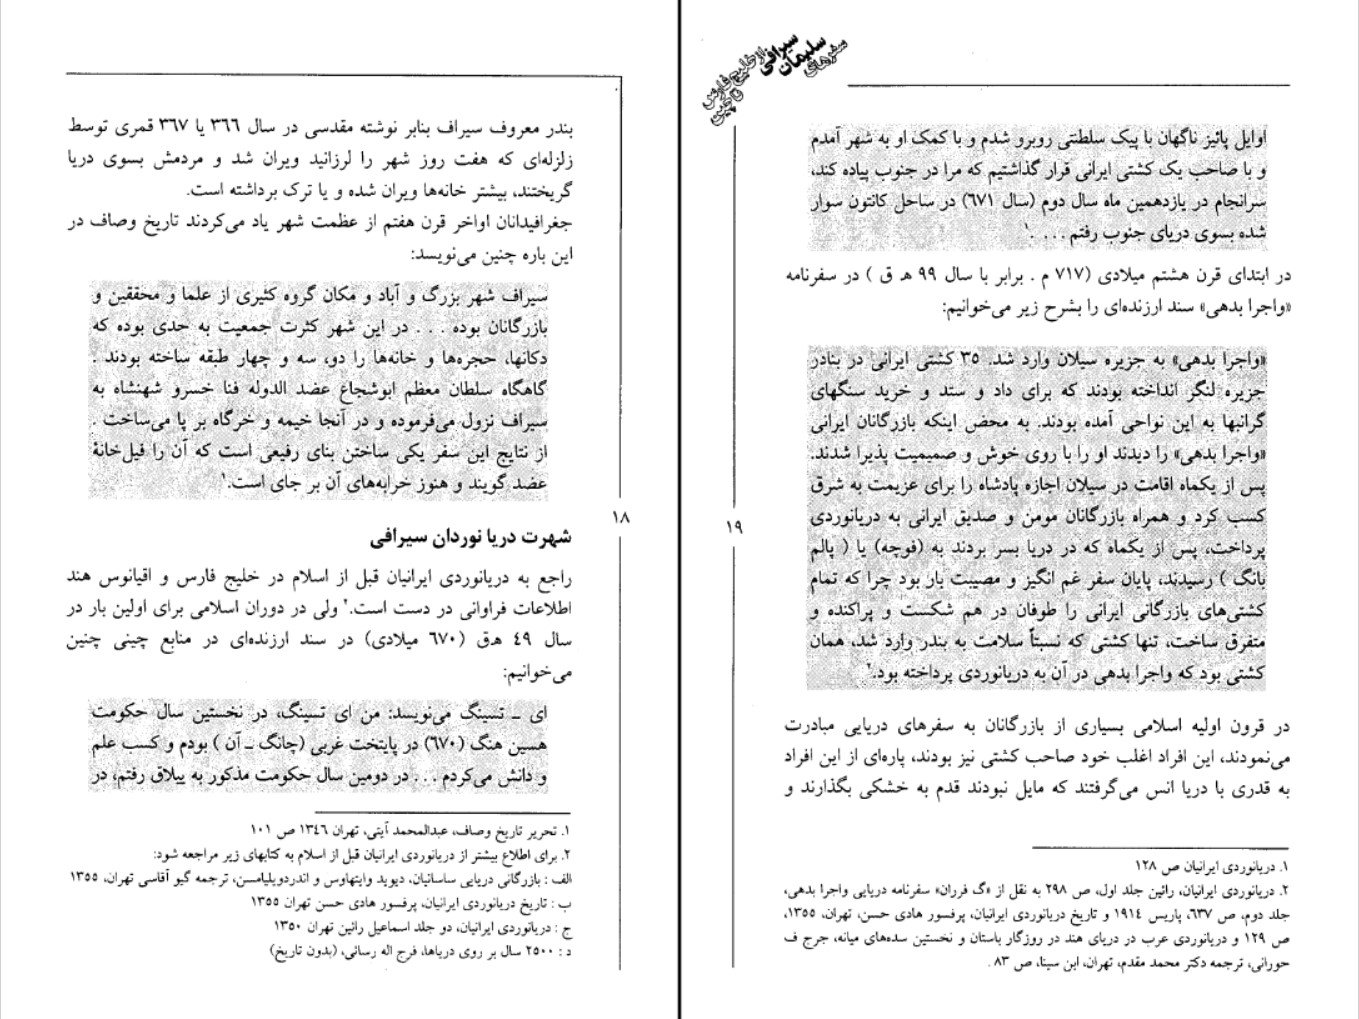 بندر معروف سیراف بنابر نوشته مقدسی در سال ۳۶۶ یا ۳۶۷ قمری توسط
زلزله‌ای که هفت روز شهر را لرزانید ویران شد و مردمش بسوی دریا
گریختند، بیشتر خانه‌ها ویران شده و یا ترک برداشته است.
جغرافیدانان اواخر قرن هفتم از عظمت شهر یاد می‌کردند تاریخ وصاف در
این باره چنین می‌نویسد:
سیراف شهر بزرگ و آباد و مکان گروه کثیری از علما و محققین و
بازرگانان بوده . . . در این شهر کثرت جمعیت به حدی بوده که
دکانها، حجره‌ها و خانه‌ها را دو، سه و چهار طبقه ساخته بودند .
گاهگاه سلطان معظم ابوشجاع عضد الدوله فنا خسرو شهنشاه به
سیراف نزول می‌فرموده و در آنجا خیمه و خرگاه بر پا می‌ساخت .
از نتایج این سفر یکی ساختن بنای رفیعی است که آن را فیل‌خانهٔ
عضد گویند و هنوز خرابه‌های آن بر جای است.۱
شهرت دریا نوردان سیرافی
راجع به دریانوردی ایرانیان قبل از اسلام در خلیج فارس و اقیانوس هند
اطلاعات فراوانی در دست است.۲ ولی در دوران اسلامی برای اولین بار در
سال ۴۹ ه‍.ق (۶۷۰ میلادی) در سند ارزنده‌ای در منابع چینی چنین
می‌خوانیم:
ای ـ تسینگ می‌نویسد: من ای تسینگ، در نخستین سال حکومت
هسین هنگ (۶۷۰) در پایتخت غربی (چانگ ـ آن ) بودم و کسب علم
و دانش می‌کردم . . . در دومین سال حکومت مذکور به ییلاق رفتم، در
۱. تحریر تاریخ وصاف، عبدالمحمد آیتی، تهران ۱۳۴۶ ص ۱۰۱
۲. برای اطلاع بیشتر از دریانوردی ایرانیان قبل از اسلام به کتابهای زیر مراجعه شود:
الف : بازرگانی دریایی ساسانیان، دیوید وایتهاوس و اندردویلیامسن، ترجمه گیو آقاسی تهران، ۱۳۵۵
ب : تاریخ دریانوردی ایرانیان، پرفسور هادی حسن تهران ۱۳۵۵
ج : دریانوردی ایرانیان، دو جلد اسماعیل رائین تهران ۱۳۵۰
د : ۲۵۰۰ سال بر روی دریاها، فرج اله رسائی، (بدون تاریخ)
۱۸
سفرهای
سلیمان
سیرافی
از خلیج فارس
تا چین
اوایل پائیز ناگهان با پیک سلطنتی روبرو شدم و با کمک او به شهر آمدم
و با صاحب یک کشتی ایرانی قرار گذاشتیم که مرا در جنوب پیاده کند،
سرانجام در یازدهمین ماه سال دوم (سال ۶۷۱) در ساحل کانتون سوار
شده بسوی دریای جنوب رفتم . . . .۱
در ابتدای قرن هشتم میلادی (۷۱۷ م . برابر با سال ۹۹ هـ ق ) در سفرنامه
«واجرا بدهی» سند ارزنده‌ای را بشرح زیر می‌خوانیم:
«واجرا بدهی» به جزیره سیلان وارد شد. ۳۵ کشتی ایرانی در بنادر
جزیره لنگر انداخته بودند که برای داد و ستد و خرید سنگهای
گرانبها به این نواحی آمده بودند. به محض اینکه بازرگانان ایرانی
«واجرا بدهی» را دیدند او را با روی خوش و صمیمیت پذیرا شدند.
پس از یکماه اقامت در سیلان اجازه پادشاه را برای عزیمت به شرق
کسب کرد و همراه بازرگانان مومن و صدیق ایرانی به دریانوردی
پرداخت، پس از یکماه که در دریا بسر بردند به (فوچه) یا ( پالم
بانگ ) رسیدند، پایان سفر غم انگیز و مصیبت بار بود چرا که تمام
کشتی‌های بازرگانی ایرانی را طوفان در هم شکست و پراکنده و
متفرق ساخت، تنها کشتی که نسبتاً سلامت به بندر وارد شد، همان
کشتی بود که واجرا بدهی در آن به دریانوردی پرداخته بود.۲
در قرون اولیه اسلامی بسیاری از بازرگانان به سفرهای دریایی مبادرت
می‌نمودند، این افراد اغلب خود صاحب کشتی نیز بودند، پاره‌ای از این افراد
به قدری با دریا انس می‌گرفتند که مایل نبودند قدم به خشکی بگذارند و
۱. دریانوردی ایرانیان ص ۱۲۸
۲. دریانوردی ایرانیان، رائین جلد اول، ص ۲۹۸ به نقل از «گ فرران» سفرنامه دریایی واجرا بدهی،
جلد دوم، ص ۶۳۷، پاریس ۱۹۱۴ و تاریخ دریانوردی ایرانیان، پرفسور هادی حسن، تهران، ۱۳۵۵،
ص ۱۲۹ و دریانوردی عرب در دریای هند در روزگار باستان و نخستین سده‌های میانه، جرج ف
حورانی، ترجمه دکتر محمد مقدم، تهران، ابن سینا، ص ۸۳ .
۱۹